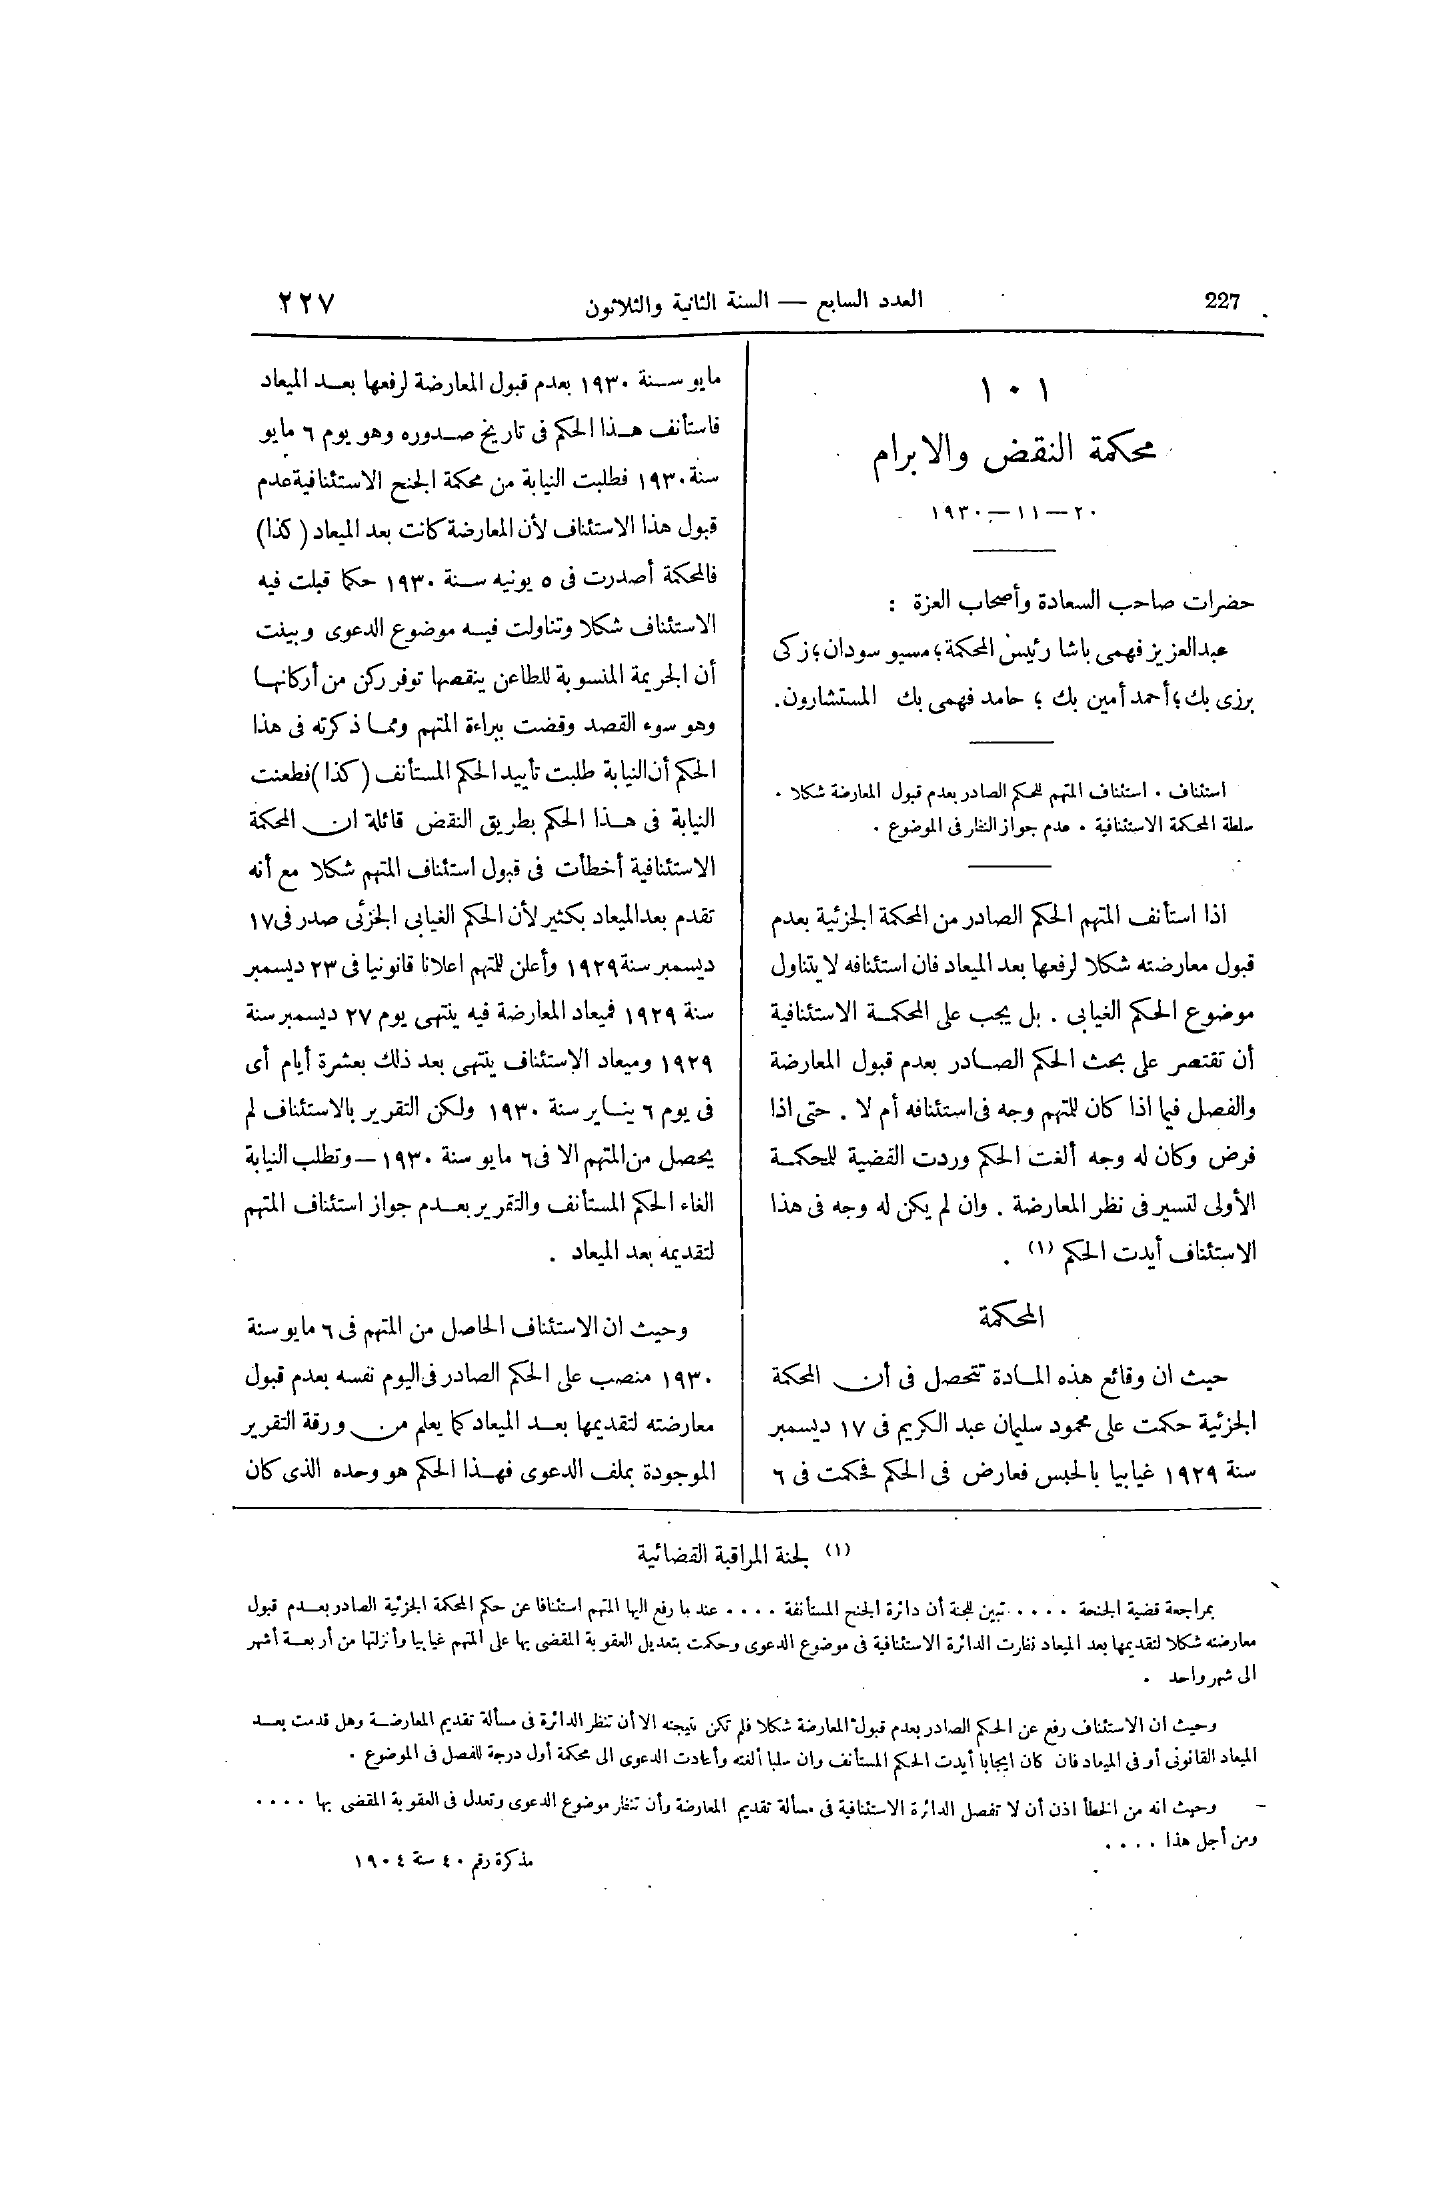 227
العدد السابع — السنة الثانية والثلاثون
٢٢٧
١٠١
محكمة النقض والابرام
٢٠—١١—١٩٣٠
حضرات صاحب السعادة وأصحاب العزة :
عبدالعزيز فهمى باشا رئيس المحكمة؛ مسيو سودان؛ زكى
برزى بك؛ أحمد أمين بك ؛ حامد فهمى بك المستشارون.
استئناف . استئناف المتهم للحكم الصادر بعدم قبول المعارضة شكلا .
سلطة المحكمة الاستئنافية . عدم جواز النظر فى الموضوع .
اذا استأنف المتهم الحكم الصادر من المحكمة الجزئية بعدم
قبول معارضته شكلا لرفعها بعد الميعاد فان استئنافه لا يتناول
موضوع الحكم الغيابى . بل يجب على المحكمة الاستئنافية
أن تقتصر على بحث الحكم الصادر بعدم قبول المعارضة
والفصل فيما اذا كان للمتهم وجه فى استئنافه أم لا . حتى اذا
فرض وكان له وجه ألغت الحكم وردت القضية للمحكمة
الأولى لتسير فى نظر المعارضة . وان لم يكن له وجه فى هذا
الاستئناف أيدت الحكم (١) .
المحكمة
حيث ان وقائع هذه المادة تتحصل فى أن المحكمة
الجزئية حكمت على محمود سليمان عبد الكريم فى ١٧ ديسمبر
سنة ١٩٢٩ غيابيا بالحبس فعارض فى الحكم فحكمت فى ٦
مايو سنة ١٩٣٠ بعدم قبول المعارضة لرفعها بعد الميعاد
فاستأنف هذا الحكم فى تاريخ صدوره وهو يوم ٦ مايو
سنة ١٩٣٠ فطلبت النيابة من محكمة الجنح الاستئنافية عدم
قبول هذا الاستئناف لأن المعارضة كانت بعد الميعاد (كذا)
فالمحكمة أصدرت فى ٥ يونيه سنة ١٩٣٠ حكما قبلت فيه
الاستئناف شكلا وتناولت فيه موضوع الدعوى وبينت
أن الجريمة المنسوبة للطاعن ينقصها توفر ركن من أركانها
وهو سوء القصد وقضت ببراءة المتهم ومما ذكرته فى هذا
الحكم أن النيابة طلبت تأييد الحكم المستأنف (كذا) فطعنت
النيابة فى هذا الحكم بطريق النقض قائلة ان المحكمة
الاستئنافية أخطأت فى قبول استئناف المتهم شكلا مع أنه
تقدم بعد الميعاد بكثير لأن الحكم الغيابى الجزئى صدر فى ١٧
ديسمبر سنة ١٩٢٩ وأعلن للمتهم اعلانا قانونيا فى ٢٣ ديسمبر
سنة ١٩٢٩ فميعاد المعارضة فيه ينتهى يوم ٢٧ ديسمبر سنة
١٩٢٩ وميعاد الاستئناف ينتهى بعد ذلك بعشرة أيام أى
فى يوم ٦ يناير سنة ١٩٣٠ ولكن التقرير بالاستئناف لم
يحصل من المتهم الا فى ٦ مايو سنة ١٩٣٠ — وتطلب النيابة
الغاء الحكم المستأنف والتقرير بعدم جواز استئناف المتهم
لتقديمه بعد الميعاد .
وحيث ان الاستئناف الحاصل من المتهم فى ٦ مايو سنة
١٩٣٠ منصب على الحكم الصادر فى اليوم نفسه بعدم قبول
معارضته لتقديمها بعد الميعاد كما يعلم من ورقة التقرير
الموجودة بملف الدعوى فهذا الحكم هو وحده الذى كان
(١) لجنة المراقبة القضائية
بمراجعة قضية الجنحة .... تبين للجنة أن دائرة الجنح المستأنفة .... عند ما رفع اليها المتهم استئنافا عن حكم المحكمة الجزئية الصادر بعدم قبول
معارضته شكلا لتقديمها بعد الميعاد نظرت الدائرة الاستئنافية فى موضوع الدعوى وحكمت بتعديل العقوبة المقضى بها على المتهم غيابيا وأنزلتها من أربعة أشهر
الى شهر واحد .
وحيث ان الاستئناف رفع عن الحكم الصادر بعدم قبول المعارضة شكلا فلم تكن نتيجته الا أن تنظر الدائرة فى مسألة تقديم المعارضة وهل قدمت بعد
الميعاد القانونى أو فى الميعاد فان كان ايجابا أيدت الحكم المستأنف وان سلبا ألغته وأعادت الدعوى الى محكمة أول درجة للفصل فى الموضوع .
وحيث انه من الخطأ اذن أن لا تفصل الدائرة الاستئنافية فى مسألة تقديم المعارضة وأن تنظر موضوع الدعوى وتعدل فى العقوبة المقضى بها ....
ومن أجل هذا ....
مذكرة رقم ٤٠ سنة ١٩٠٤